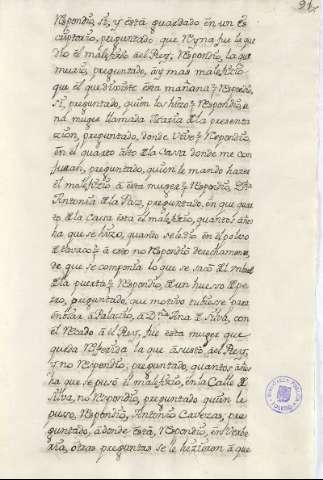 91
Respondio, si, y está guardado en un es
critorio, preguntado, que Reyna fue la que
dio el maleficio al Rey, Respondio, la que
murio, preguntado, ay mas maleficio
que el que dixiste esta mañana? Respondio,
si, preguntado, quien los hizo? Respondio, u
na muger llamada Maria de la presenta
cion, preguntado, donde vive? Respondio,
en el quarto alto de la Casa donde me con
juran, preguntado, quien le mando hacer
el maleficio a esta muger? Respondio, Dª
Antonia de la Paz, preguntado, en que quar
to de la Casa está el maleficio, quantos años
ha que se hizo, quanto se le dio en el polvo
de tavaco? a esto no Respondio derechamente,
de que se componia lo que se sacó del umbral
de la puerta? Respondio, de un huesso de pe
rro, preguntado, que motivo tubisse para
embiar a Palacio, a Dª Ana de Silva, con
el Recado a el Rey, fue esta muger que
queda Referida la que asustó al Rey,
y no Respondio, preguntado, quantos años
ha que se puso el maleficio, en la Calle de
Silva, no Respondio, preguntado quien le
puso, Respondio, Antonio Cavezas, pre
guntado, adonde está, Respondio, en Berbe
ria, otras preguntas se le hizieron a que